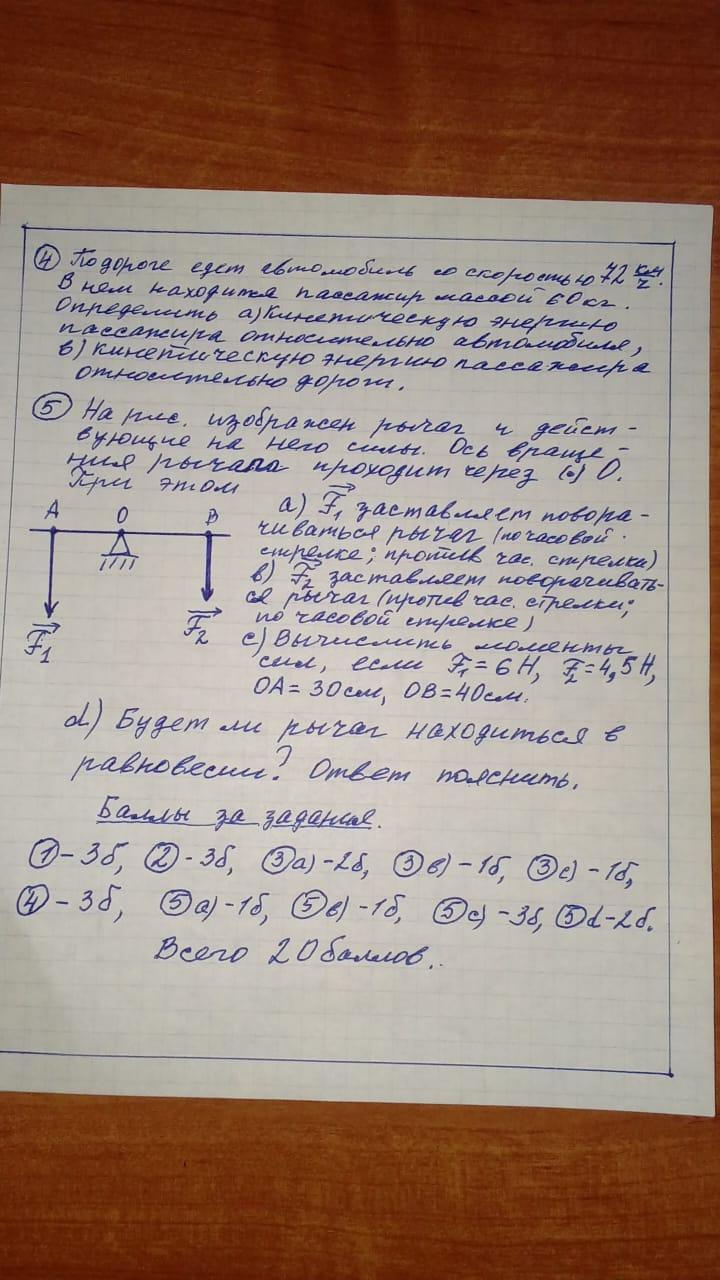 ④ По дороге едет автомобиль со скоростью 72 км/ч.
В нем находится пассажир массой 60 кг.
Определить а) Кинетическую энергию
пассажира относительно автомобиля,
в) кинетическую энергию пассажира
относительно дороги.
⑤ На рис. изображен рычаг и дейст-
вующие на него силы. Ось враще-
ния рычага проходит через (·) О.
При этом
А О В
F₁ F₂
а) F₁ заставляет повора-
чиваться рычаг (по часовой
стрелке; против час. стрелки)
в) F₂ заставляет поворачивать-
ся рычаг (против час. стрелки;
по часовой стрелке)
с) Вычислить моменты
сил, если F₁ = 6 Н, F₂ = 4,5 Н,
ОА = 30 см, ОВ = 40 см.
d) Будет ли рычаг находиться в
равновесии? Ответ пояснить.
Баллы за задания.
① - 3б, ② - 3б, ③ а) - 2б, ③ в) - 1б, ③ с) - 1б,
④ - 3б, ⑤ а) - 1б, ⑤ в) - 1б, ⑤ с) - 3б, ⑤ d - 2б.
Всего 20 баллов.